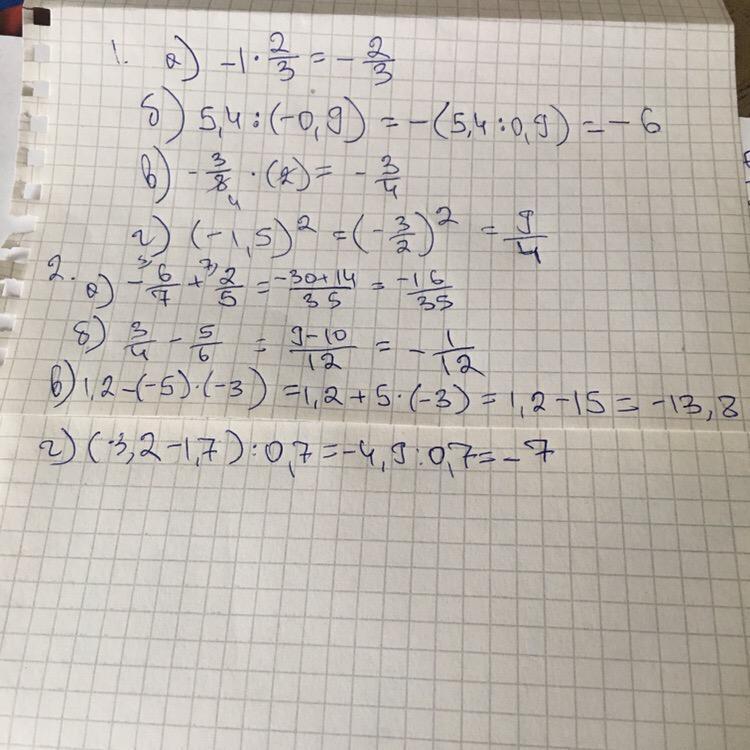 1. а) -1 · 2/3 = - 2/3
б) 5,4 : (-0,9) = -(5,4 : 0,9) = -6
в) - 3/8 4 · (2) = - 3/4
г) (-1,5)² = (- 3/2)² = 9/4
2. а) - 6/7 + 2/5 = -30+14/35 = -16/35
б) 3/4 - 5/6 = 9-10/12 = - 1/12
в) 1,2 - (-5) · (-3) = 1,2 + 5 · (-3) = 1,2 - 15 = -13,8
г) (-3,2 - 1,7) : 0,7 = -4,9 : 0,7 = -7